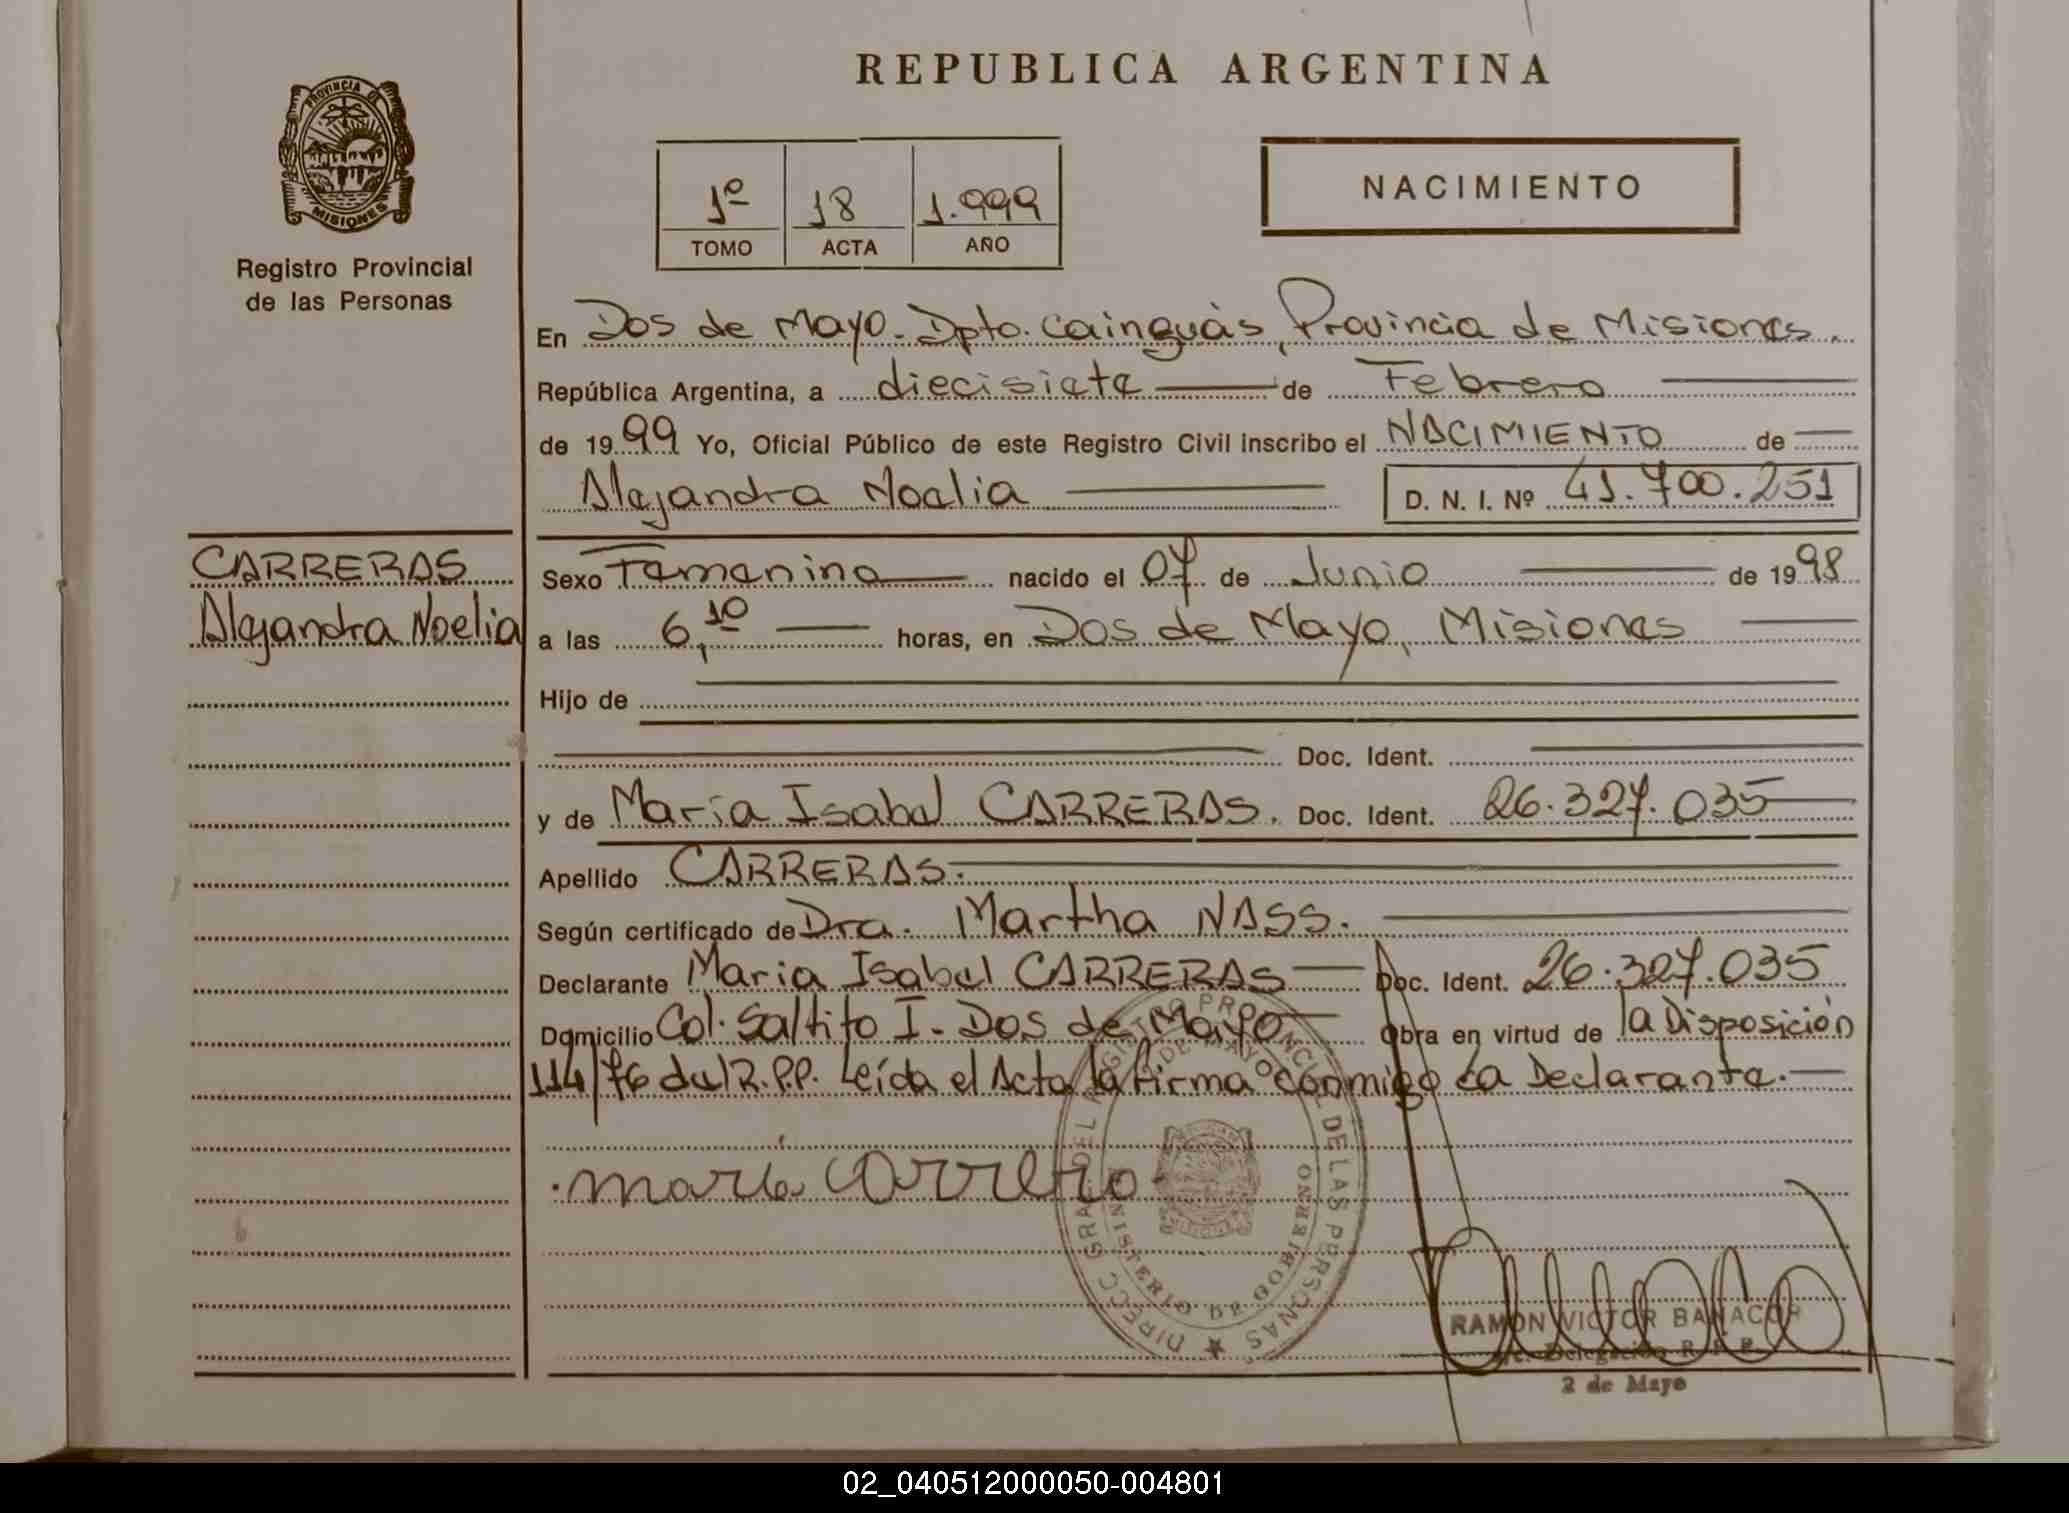 REPUBLICA ARGENTINA
PROVINCIA DE
MISIONES
Registro Provincial
de las Personas
1º 18 1.999
TOMO ACTA AÑO
NACIMIENTO
En Dos de Mayo - Dpto. Cainguás, Provincia de Misiones.
República Argentina, a diecisiete de Febrero
de 1999 Yo, Oficial Público de este Registro Civil inscribo el NACIMIENTO de
Alejandra Noelia D. N. I. Nº 41.700.251
CARRERAS
Alejandra Noelia
Sexo Femenino nacido el 07 de Junio de 1998
a las 6,10 horas, en Dos de Mayo, Misiones
Hijo de
Doc. Ident.
y de María Isabel CARRERAS. Doc. Ident. 26.327.035
Apellido CARRERAS.
Según certificado de Dra. Martha NASS.
Declarante María Isabel CARRERAS Doc. Ident. 26.327.035
Domicilio Col. Saltito I - Dos de Mayo Obra en virtud de la Disposición
114/76 del R.P.P. Leída el Acta la firma conmigo La Declarante.
DIRECC GRAL DEL REGISTRO PROVINCIAL DE LAS PERSONAS
DE MAYO
MINISTERIO DE GOBIERNO
RAMON VICTOR BANACOR
Delegación R. P. P.
2 de Mayo
02_040512000050-004801